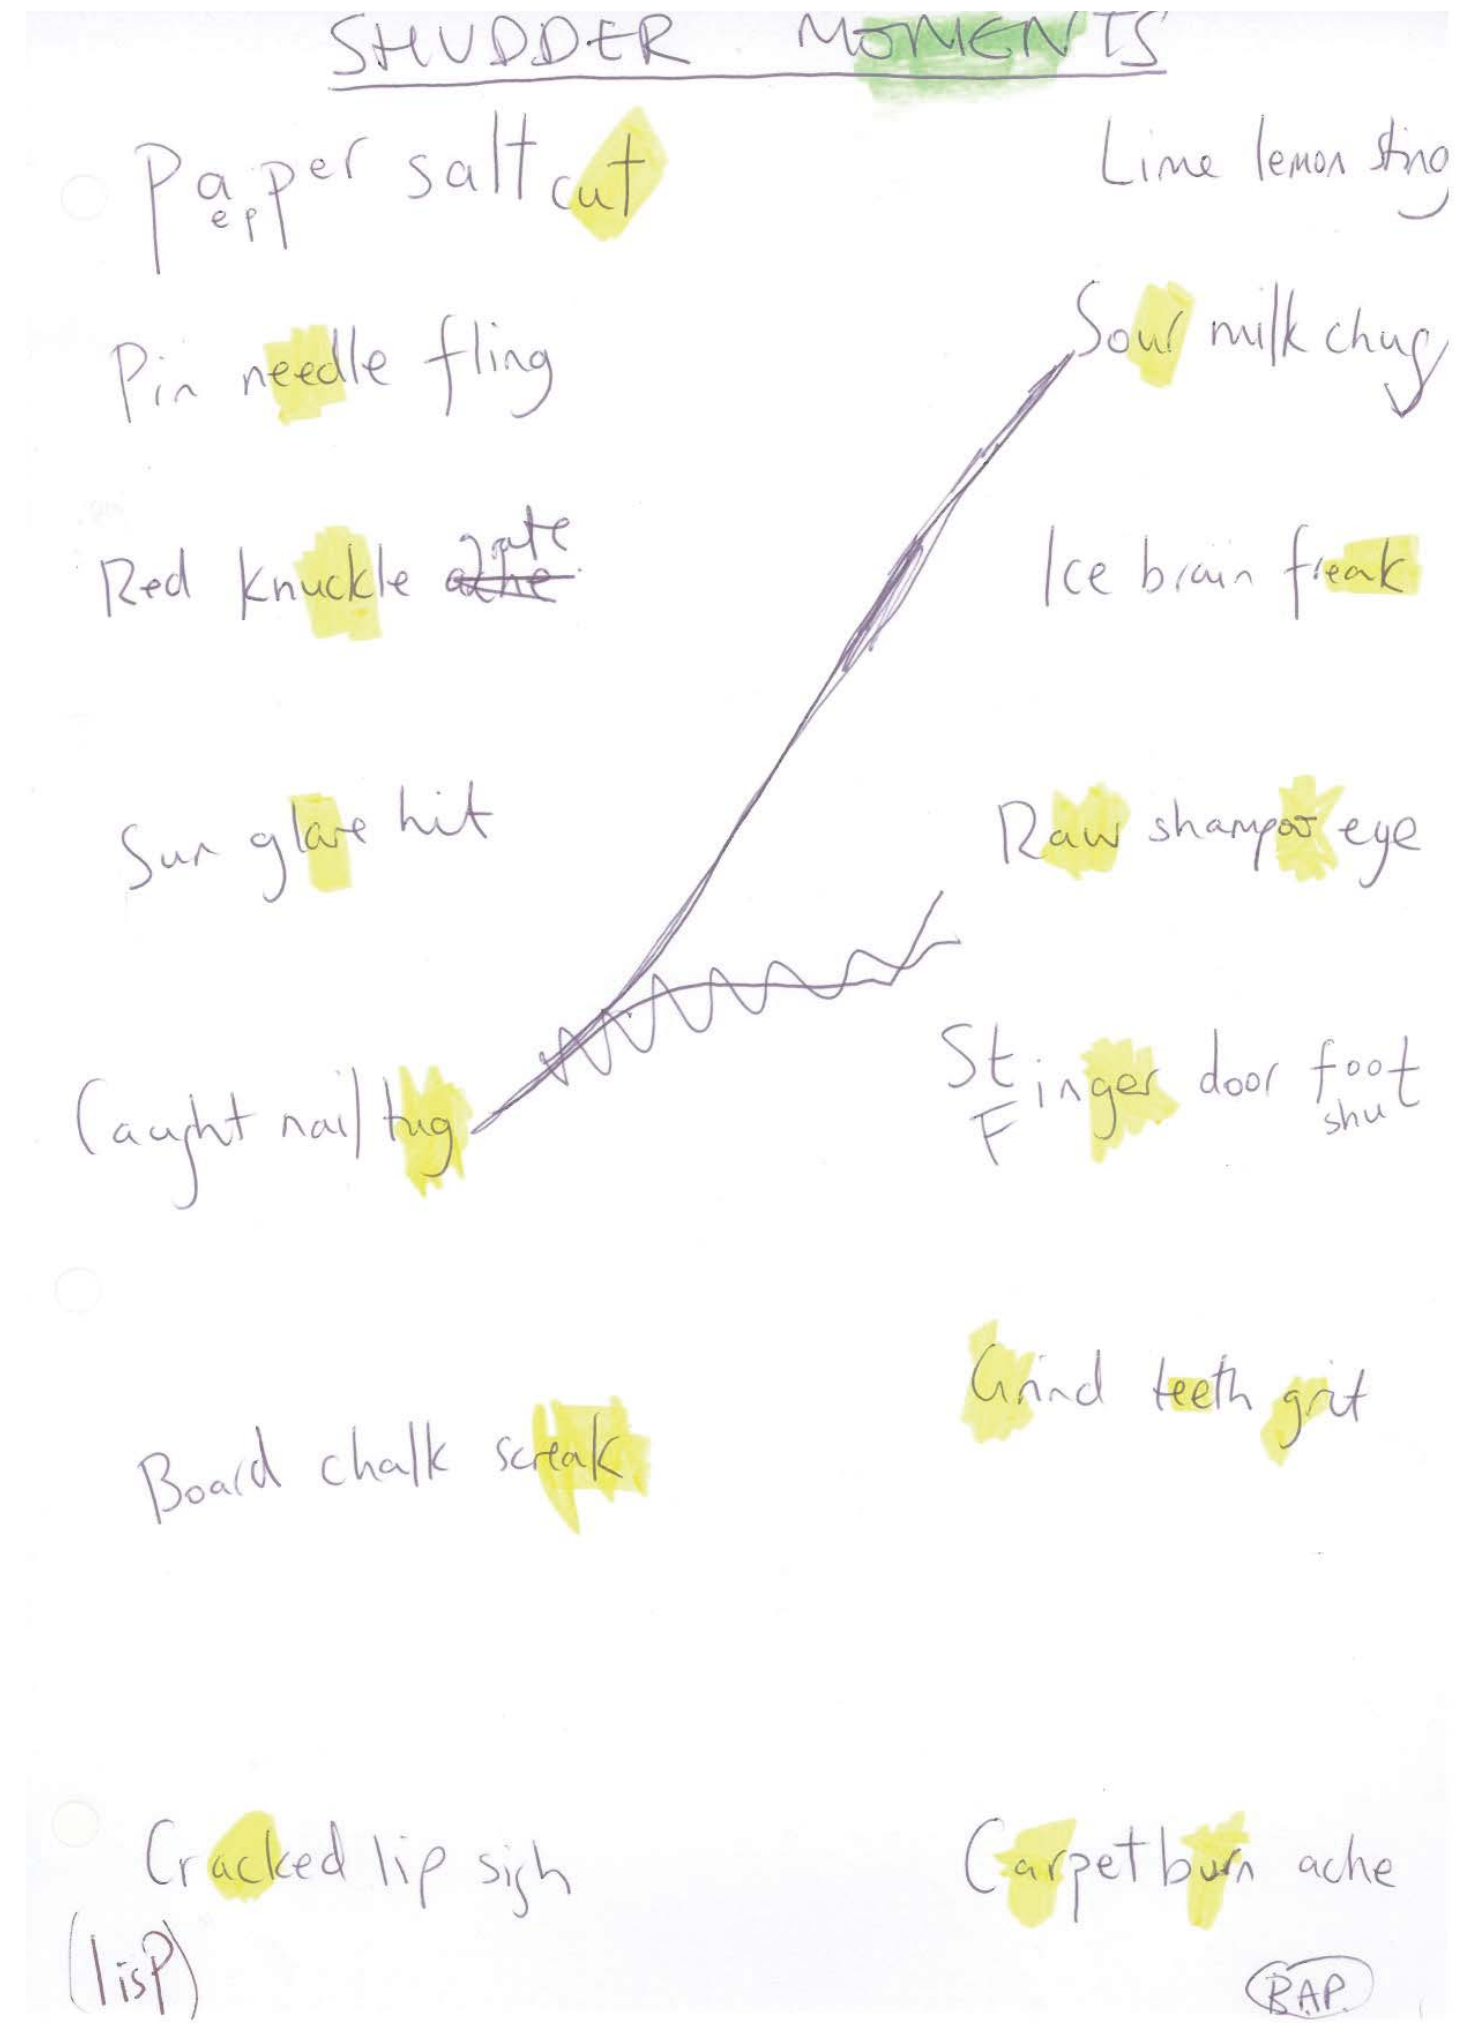 SHUDDER MOMENTS
Paper salt cut
epp
Pin needle fling
Red knuckle ache
grate
Sun glare hit
Caught nail tug
Board chalk screak
Cracked lip sigh
(lisp)
Lime lemon sting
Sour milk chug
Ice brain freak
Raw shampoo eye
Stinger door foot
F shut
Grind teeth grit
Carpet burn ache
B.A.P.